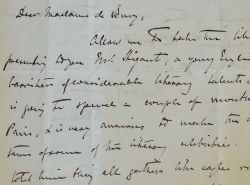 Dear Madame de Bury,
Allow me to take the lib
presenting to you Mr. a young Englis
barrister of considerable literary talents
is going to spend a couple of months
Paris, & is very anxious to make the a
tance of some of the literary celebrities.
told him they all gather like eagles